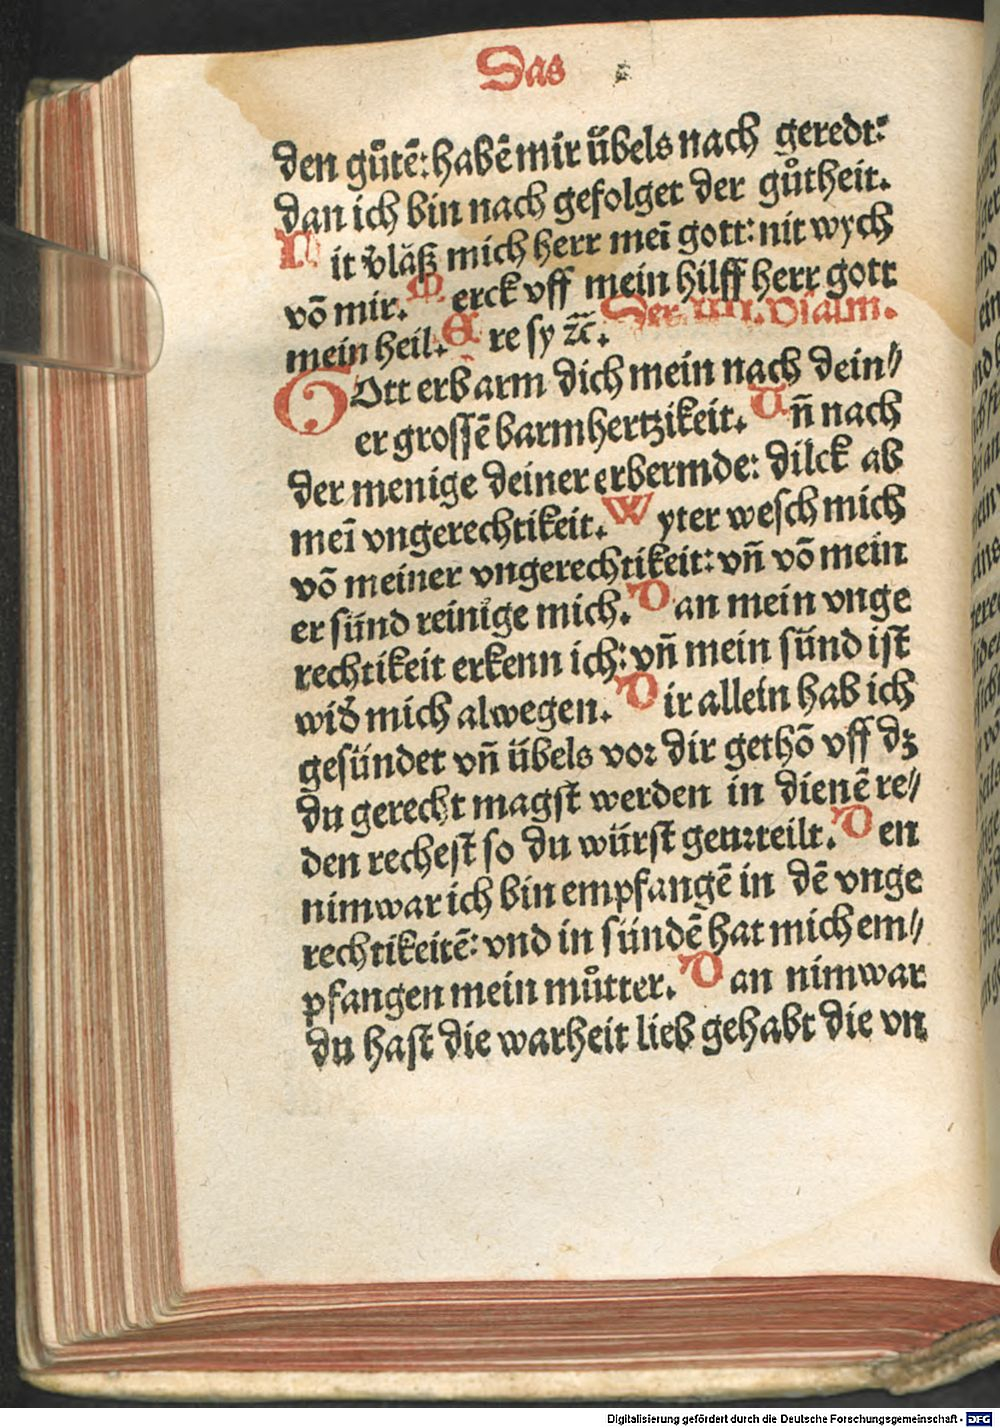 Das
den gůtē: habē mir übels nach geredt:
dan ich bin nach gefolget der gůtheit.
Nit v̄läß mich herr meī gott: nit wych
vō mir. Merck vff mein hilff herr gott
mein heil. Ere sy ⁊c̄. Der IIII. Psalm.
GOtt erbarm dich mein nach dein⸗
er grossē barmhertzikeit. Vn̄ nach
der menige deiner erbermde: dilck ab
meī vngerechtikeit. Wyter wesch mich
vō meiner vngerechtikeit: vn̄ vō mein
er sünd reinige mich. Dan mein vnge
rechtikeit erkenn ich: vn̄ mein sünd ist
wid̄ mich alwegen. Dir allein hab ich
gesündet vn̄ übels vor dir gethō vff dz
du gerecht magst werden in dienē re⸗
den rechest so du würst geurteilt. Den
nimwar ich bin empfangē in dē vnge
rechtikeitē: vnd in sündē hat mich em⸗
pfangen mein můtter. Dan nimwar
du hast die warheit lieb gehabt die vn
Digitalisierung gefördert durch die Deutsche Forschungsgemeinschaft - DFG